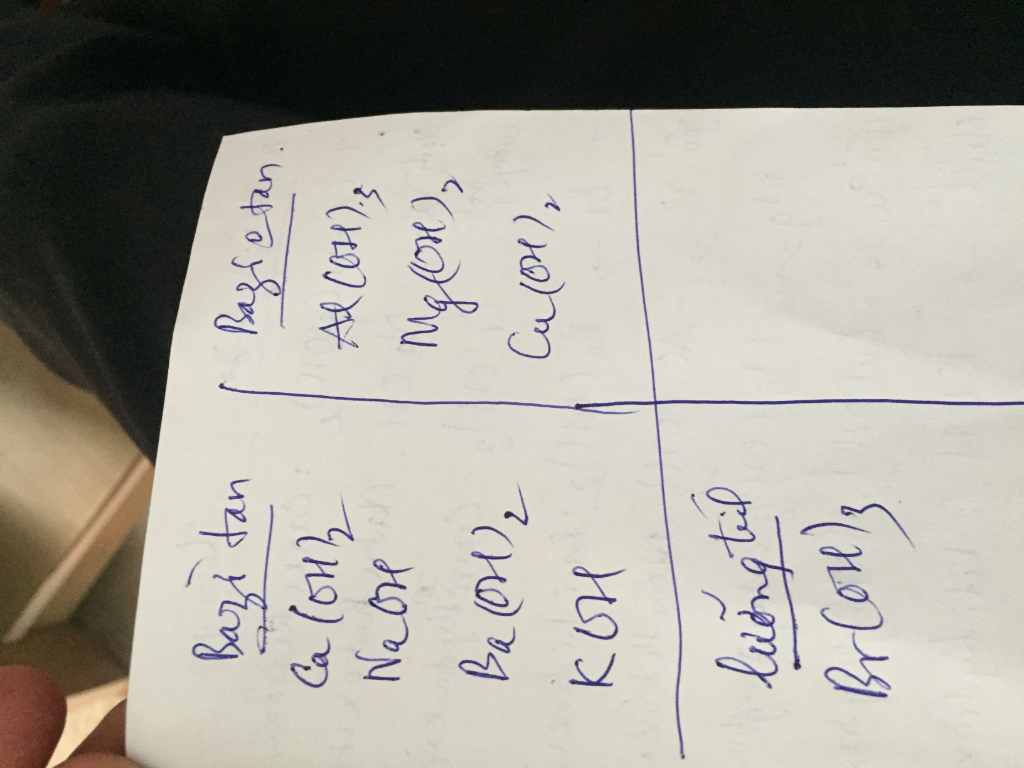 Bazơ tan
Ca(OH)2
NaOH
Ba(OH)2
KOH
Bazơ c tan.
Al(OH)3
Mg(OH)2
Cu(OH)2
lưỡng tính
Br(OH)3